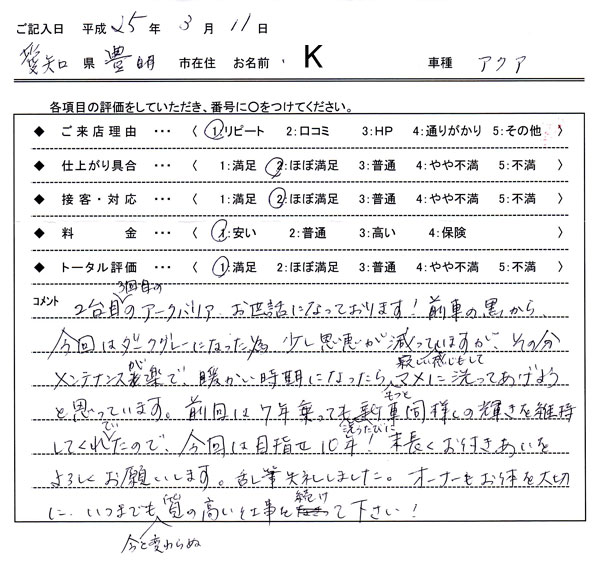 ご記入日 平成 25 年 3 月 11 日
愛知 県 豊明 市在住 お名前 ・K 車種 アクア
各項目の評価をしていただき、番号に〇をつけてください。
◆ ご来店理由 ・・・ 〈 1:リピート 2:口コミ 3:HP 4:通りがかり 5:その他 〉
◆ 仕上がり具合 ・・・ 〈 1:満足 2:ほぼ満足 3:普通 4:やや不満 5:不満 〉
◆ 接客・対応 ・・・ 〈 1:満足 2:ほぼ満足 3:普通 4:やや不満 5:不満 〉
◆ 料金 ・・・ 〈 1:安い 2:普通 3:高い 4:保険 〉
◆ トータル評価 ・・・ 〈 1:満足 2:ほぼ満足 3:普通 4:やや不満 5:不満 〉
3回目の
コメント 2台目のアークバリア、お世話になっております!前車の黒から、
今回はダークグレーになった為 少し恩恵が減っていますが、その分
寂しい感じもして
メンテナンスが楽で、暖かい時期になったらマメに洗ってあげよう
もっと
と思っています。前回は7年乗っても新車同様の輝きを維持
洗うたびに
してくれていたので、今回は目指せ10年!末長くお付きあいを
よろしくお願いします。乱筆失礼しました。オーナーもお体を大切
に、いつまでも質の高い仕事を続けて下さい!
今と変わらぬ